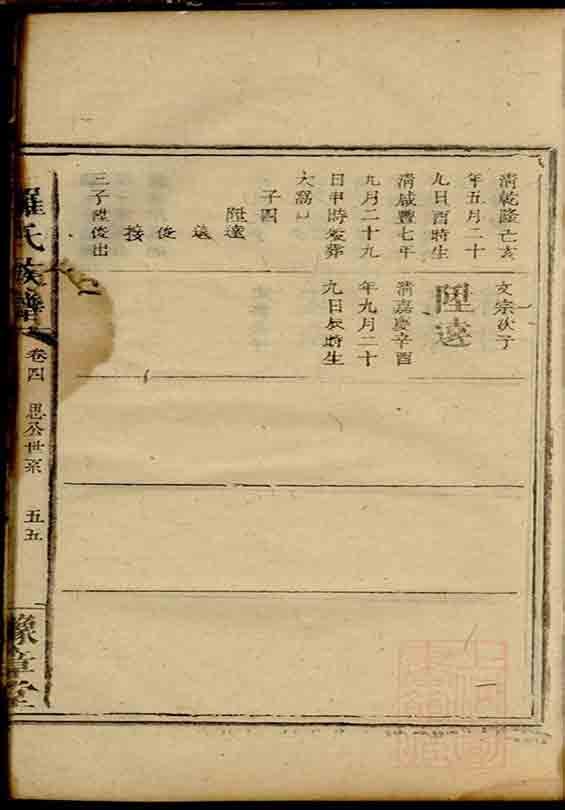 清乾隆亡亥
年五月二十
九日酉時生
清咸豐七年
九月二十九
日申時歿葬
大窩
子四
陞達
送
俊
接
三子陞俊出
文宗次子
陞遠
清嘉慶辛酉
年九月二十
九日辰時生
羅氏族譜
卷四
思公世系
五五
豫章堂